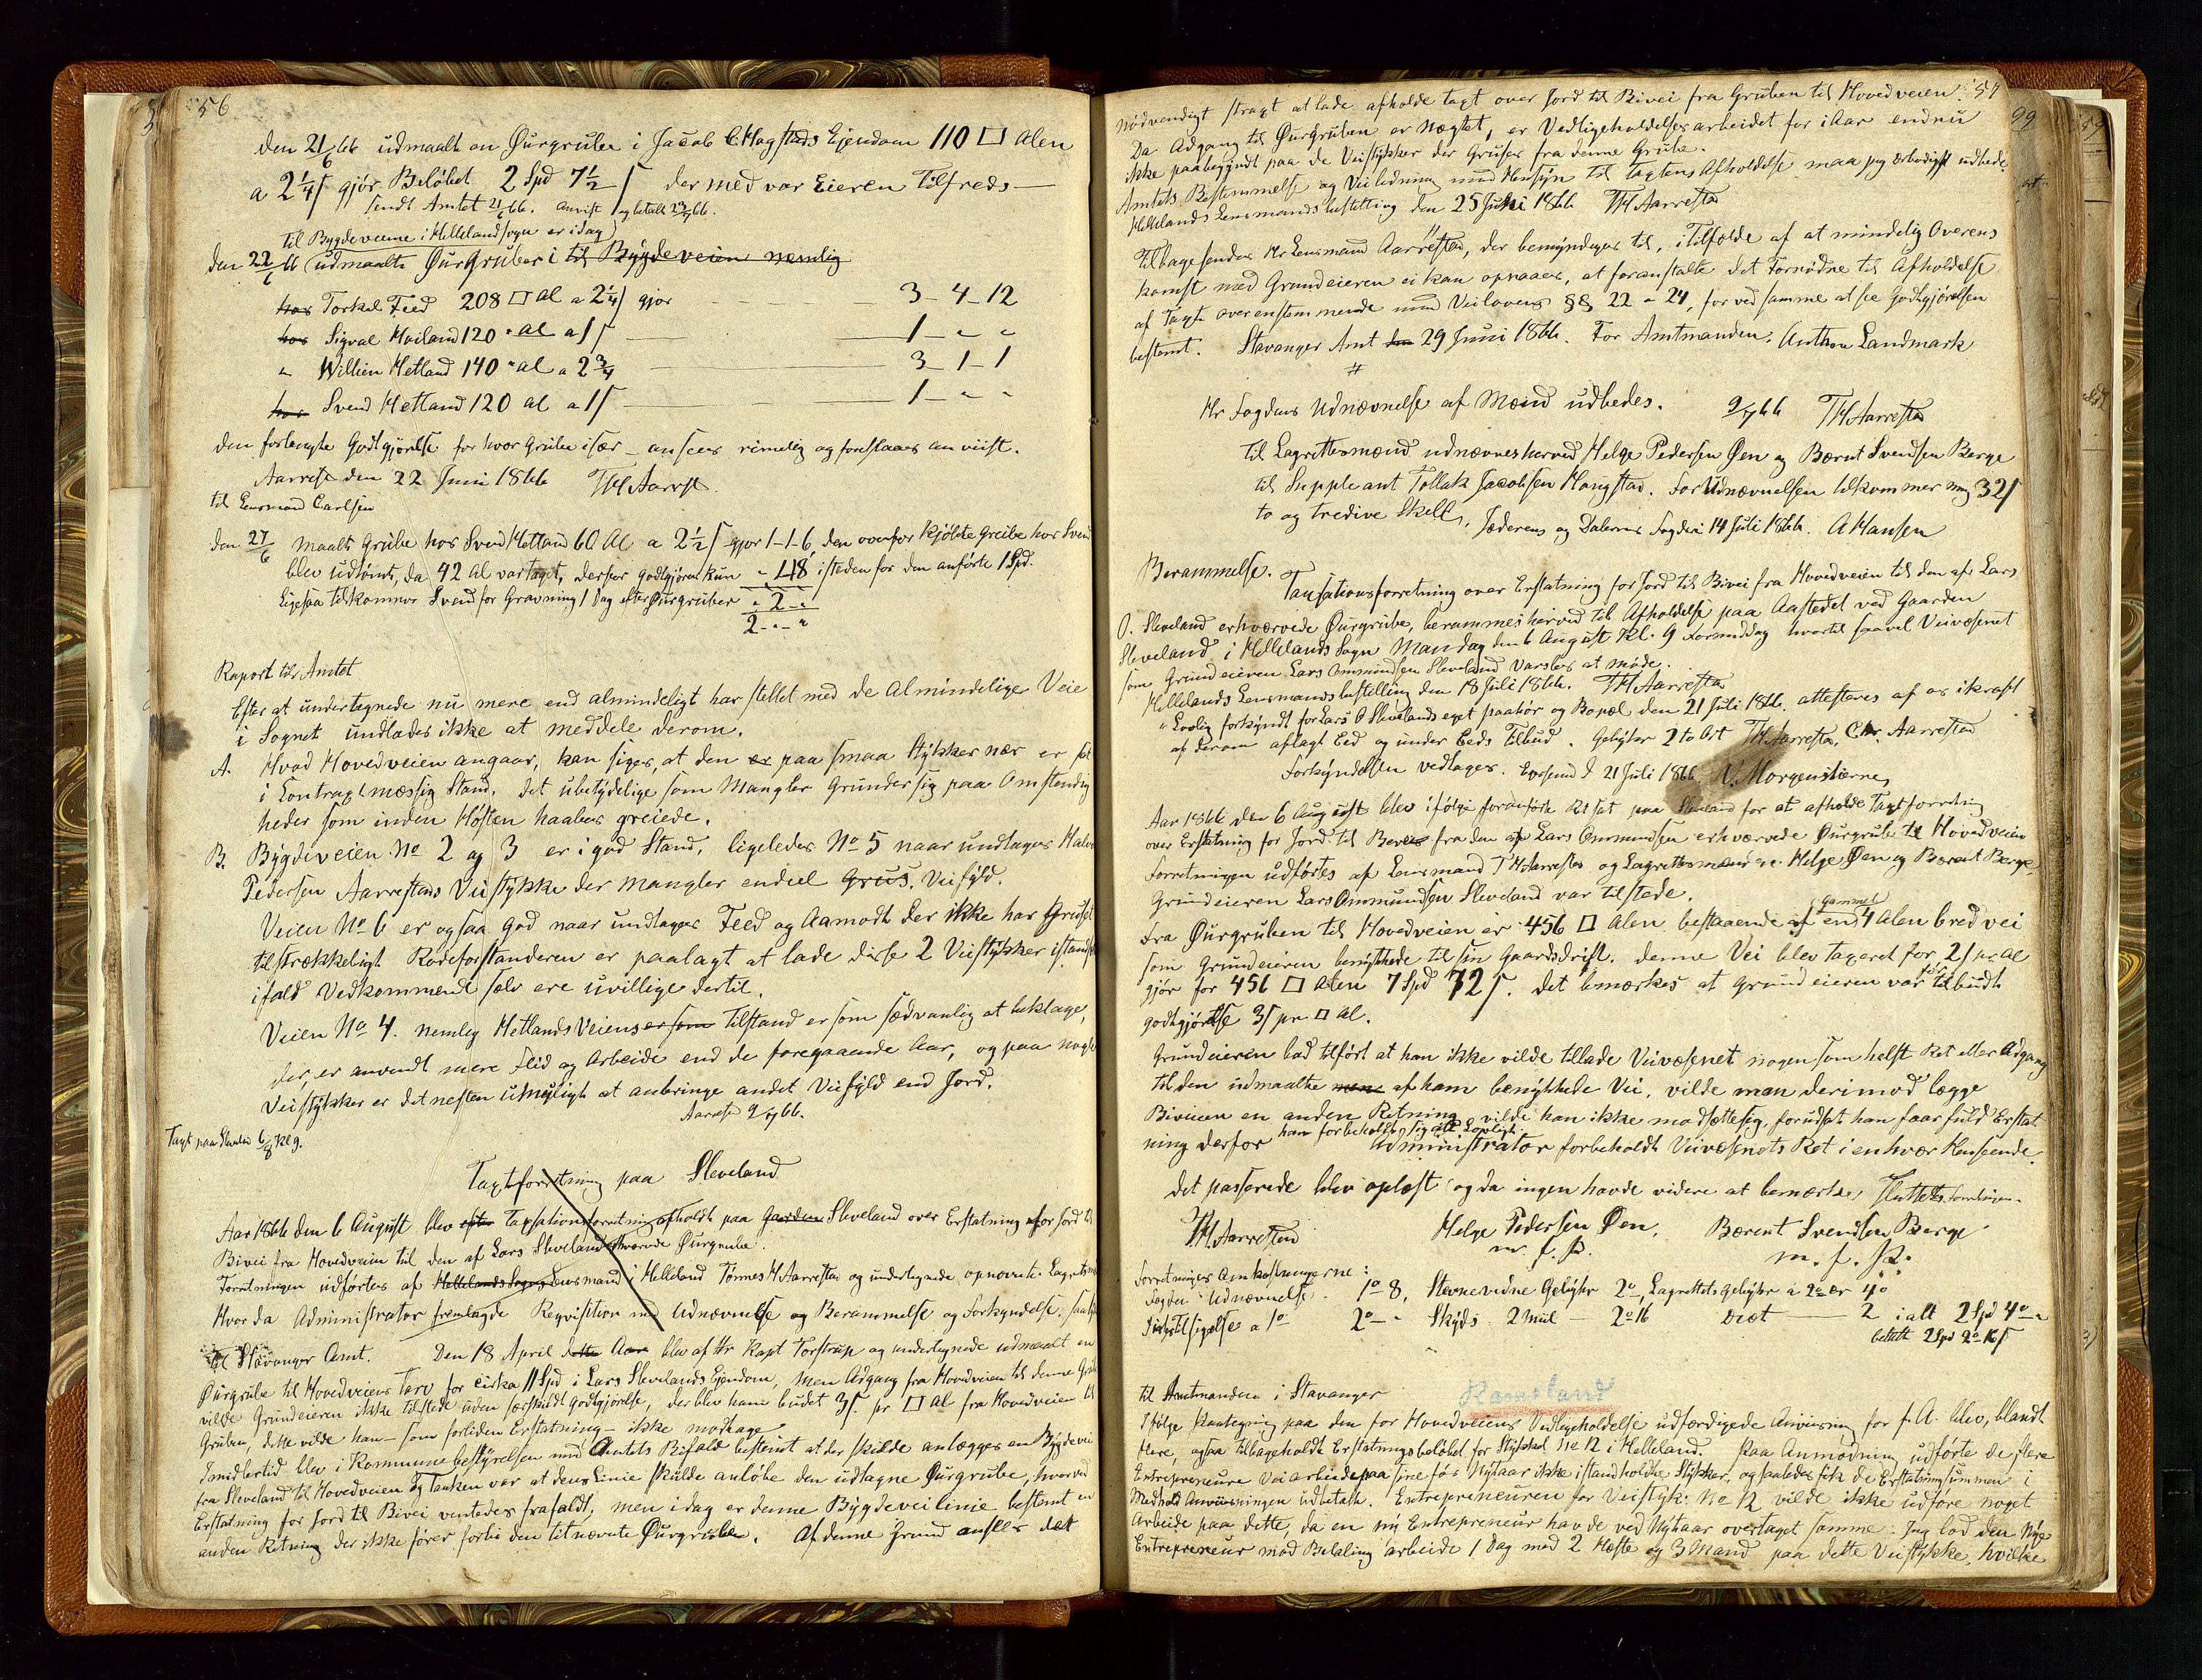 56
den 21/6 66 udmaalt en Øurgrube i Jacob C Hagstads Ejendom 110 □ Alen
a 2 1/4 ß gjør Beløbet 2 Spd 7 1/2 ß der med var Eieren Tilfreds—
sendt Amtet 21/6 66. Anvist og betalt 23/7 66.
til Bygdeveiene i Hellelandsogn er idag
den 22/6 66 udmaalte Øurgruber i til Bygdeveien nemlig
hos Torkel Feed 208 □ Al a 2 1/4 ß gjør 3 - 4 - 12
hos Sigval Hailand 120 " Al a 1 ß 1 - " "
" Willien Hetland 140 " al a 2 3/4 3 - 1 - 1
hos Svend Hetland 120 al a 1 ß 1 - " "
den forlangte Godtgjørelse for hver Grube især - ansees rimelig og foreslaaes anviist.
Aarrest den 22 Juni 1866 TH Aarrest
til Lensmand Carlsen
den 27/6 maalt Grube hos Svend Hetland 60 Al a 2 1/2 ß gjør 1-1-6, den ovenfor kjøbte Greibe hos Svend
blev udtømt, da 42 Al var taget, derfor godtgjøres kun " 48 isteden for den anførte 1 Spd.
Ligesaa tilkommer Svend for Gravning 1 Dag efter Øurgruber " 2 - "
2 - " - "
Raport til Amtet
Efter at undertegnede nu mere end almindeligt har stellet med de Almindelige Veie
i Sognet undlades ikke at meddele derom.
A. Hvad Hovedveien angaar, kan siges, at den er paa smaa Stykker nær er
i Contraxtmæssig Stand. det ubetydelige som Mangler Grunder sig paa Omstændig
heder som inden Høsten haabes greiede.
B. Bygdeveien No 2 og 3 er i god Stand, ligeledes No 5 naar undtages
Pedersen Aarrestads Veistykke der Mangler endeel Grus. Veifyld.
Veien No 6 er ogsaa God naar undtages Feed og Aamodt der ikke har Gruset
tilstrækkeligt Rodeforstanderen er paalagt at lade disse 2 Veistykker istand
ifald Vedkommende selv ere uvillige dertil.
Veien No 4. nemlig Hetlands Veiens er som tilstand er som sædvanlig at beklage,
der, er anvendt mere Flid og Arbeide end de foregaaende Aar, og paa nogle
Veistykker er det nesten umuligt at anbringe andet Veifyld end Jord.
Aarrest 9/7 66.
Taxt paa Sleveland 6/8 Kl 9.
Taxtforretning paa Sleveland
Aar 1866 den 6 August blev efter Taxsationsforretning afholdt paa Gaarden Sleveland over Erstatning for Jord til
Bivei fra Hovedveien til den af Lars Sleveland erhværvede Øurgrube.
Forretningen udførtes af Hellelands Sogns Lensmand i Helleland Tønnes H Aarrestad og undertegnede opnævnte Lagrettes
Hvor da Administrator fremlagde Reqvisition med Udnævnelse og Berammelse og Forkyndelse.
til Stavanger Amt. Den 18 April dette Aar blev af Hr Kapt Torstrup og undertegnede udmaalt en
Øurgrube til Hovedveiens Tarv for cirka 11 Spd i Lars Slevelands Ejendom, men Adgang fra Hovedveien til denne Grube
vilde Grundeieren ikke tilstede uden særskildt godtgjørelse, der blev ham budet 3 ß pr □ Al fra Hovedveien til
Gruben, dette vilde han - som forliden Erstatning - ikke modtage
Imidlertid blev i Kommunebestyrelsen med Amtets Bifald bestemt at der skulde anlægges en Bygdevei
fra Sleveland til Hovedveien og Tanken var at dens Linie skulde anløbe den udtagne Øurgrube, hvorved
Erstatning for Jord til Bivei ventedes frafaldt, men i dag er denne Bygdeveilinie bestemt en
anden Retning der ikke fører forbi den titnævnte Øurgrube. Af denne Grund ansees det
57
nødvendigt stragt at lade afholde taxt over Jord til Bivei fra Gruben til Hovedveien.
Da Adgang til Øurgruben er nægtet, er Vedligeholdelsesarbeidet for i Aar endnu
ikke paabegyndt paa de Veistykker der Gruses fra denne Grube.
Amtets Bestemmelse og Veiledning med Hensyn til Taxtens Afholdelse maa jeg ærbødigst udbede.
Hellelands Lensmandsbestilling den 25 Juni 1866 TH Aarrestad
Tilbagesendes Hr Lensmand Aarrestad, der bemyndiges til, i Tilfælde af at mindelig Overens
komst med Grundeieren ei kan opnaaes, at foranstalte det Fornødne til Afholdelse
af Taxt overensstemmende med Veilovens §§ 22 - 24, for ved samme at see Godtgjørelsen
bestemt. Stavanger Amt den 29 Juni 1866. For Amtmanden. Anthon Landmark
Hr Fogdens Udnævnelse af Mænd udbedes. 9/7 66 TH Aarrestad
Til Lagrettesmænd udnævnes herved Helge Pedersen Øen og Bærent Svendsen Berge
til Suppleant Tollak Jacobsen Haugstad. For Udnævnelsen tilkommer mig 32 ß
to og tredive Skell. Jæderens og Dalernes Fogderi 14 Juli 1866. A Hansen
Berammelse. Taxsationsforretning over Erstatning for Jord til Bivei fra Hovedveien til den af Lars
O. Sleveland erhværvede Øurgrube, berammes herved til Afholdelse paa Aastedet ved Gaarden
Sleveland i Hellelands Sogn Mandag den 6 August Kl. 9 Formiddag hvortil saavel Veivæsenet
som Grundeieren Lars Ommundsen Sleveland varsles at møde.
Hellelands Lensmandsbestilling den 18 Juli 1866. TH Aarrestad
" Lovlig forkyndt for Lars O Slevelands eget paahør og Bopæl den 21 Juli 1866. attesteres af os i kraft
af derom aflagt Eed og under Eeds Tilbud. Gebyhr 2 to Ort TH Aarrestad, Chr. Aarrestad
Forkyndelsen vedtages. Egersund d 21 Juli 1866 N. Morgenstierne
Aar 1866 den 6 August blev ifølge foranførte Ret sat paa Sleveland for at afholde Taxtforretning
over Erstatning for Jord til Bivei fra den af Lars Ommundsen erhværvede Øurgrube til Hovedveien
Forretningen udførtes af Lensmand TH Aarrestad og Lagrettesmændene Helge Øen og Bærent Berge.
Grundeieren Lars Ommundsen Sleveland var tilstede.
Fra Øurgruben til Hovedveien er 456 □ Alen bestaaende af en gammel 4 Alen bred vei
som Grundeieren benyttede til sin Gaardsdrift. denne Vei blev taxeret for 2 ß pr Al
gjør for 456 □ Alen 7 Spd 72 ß. det bemærkes at Grundeieren var før tilbudt
godtgjørelse 3 ß pr □ Al.
Grundeieren bad tilført at han ikke vilde tillade Veivæsenet nogen som helst Ret eller Adgang
til den udmaalte men af ham benyttede Vei, vilde man derimod lægge
Biveien en anden Retning vilde han ikke modsættesig, forudsat han faar fuld Erstat
ning derfor han forbeholdt sig alt Lovligt. Administrator forbeholdt Veivæsnets Ret i enhver Henseende.
det passerede blev oplæst og da ingen havde videre at bemærke, Sluttedes Forretningen.
TH Aarrestad Helge Pedersen Øen, Bærent Svendsen Berge
m. f. P. m. f. P.
Forretnings Omkostningerne:
Fogden Udnævnelse 1 o 8, Stevnevidne Gebyhr 2 o, Lagrettets gebyhr a 2 o er 4 o
Tilsigelse a 1 o 2 o - " Skyds 2 Miil - 2 o 16 Diæt 2 ialt 2 Spd 4 o - "
betalt 2 Spd 2 o 16 ß
til Amtmanden i Stavanger Ramsland
Ifølge Paategning paa den for Hovedveiens Vedligeholdelse udfærdigede Anviisning for f. A. blev, blandt
flere, ogsaa tilbageholdt Erstatningsbeløbet for Stykket No 12 i Helleland. Paa Anmodning udførte de flere
Entrepreneure Vei arbeide paa sine før Nytaar ikke istandholdte Stykker, og saaledes fik de Erstatningssummen i
Medhold Anviisningen udbetalt. Entrepreneuren for Veistyk: No 12 vilde ikke udføre noget
Arbeide paa dette, da en ny Entrepreneur havde ved Nytaar overtaget samme. Jeg lod den Nye
Entrepreneur mod Betaling arbeide 1 Dag med 2 Heste og 3 Mand paa dette Veistykke, hvilke